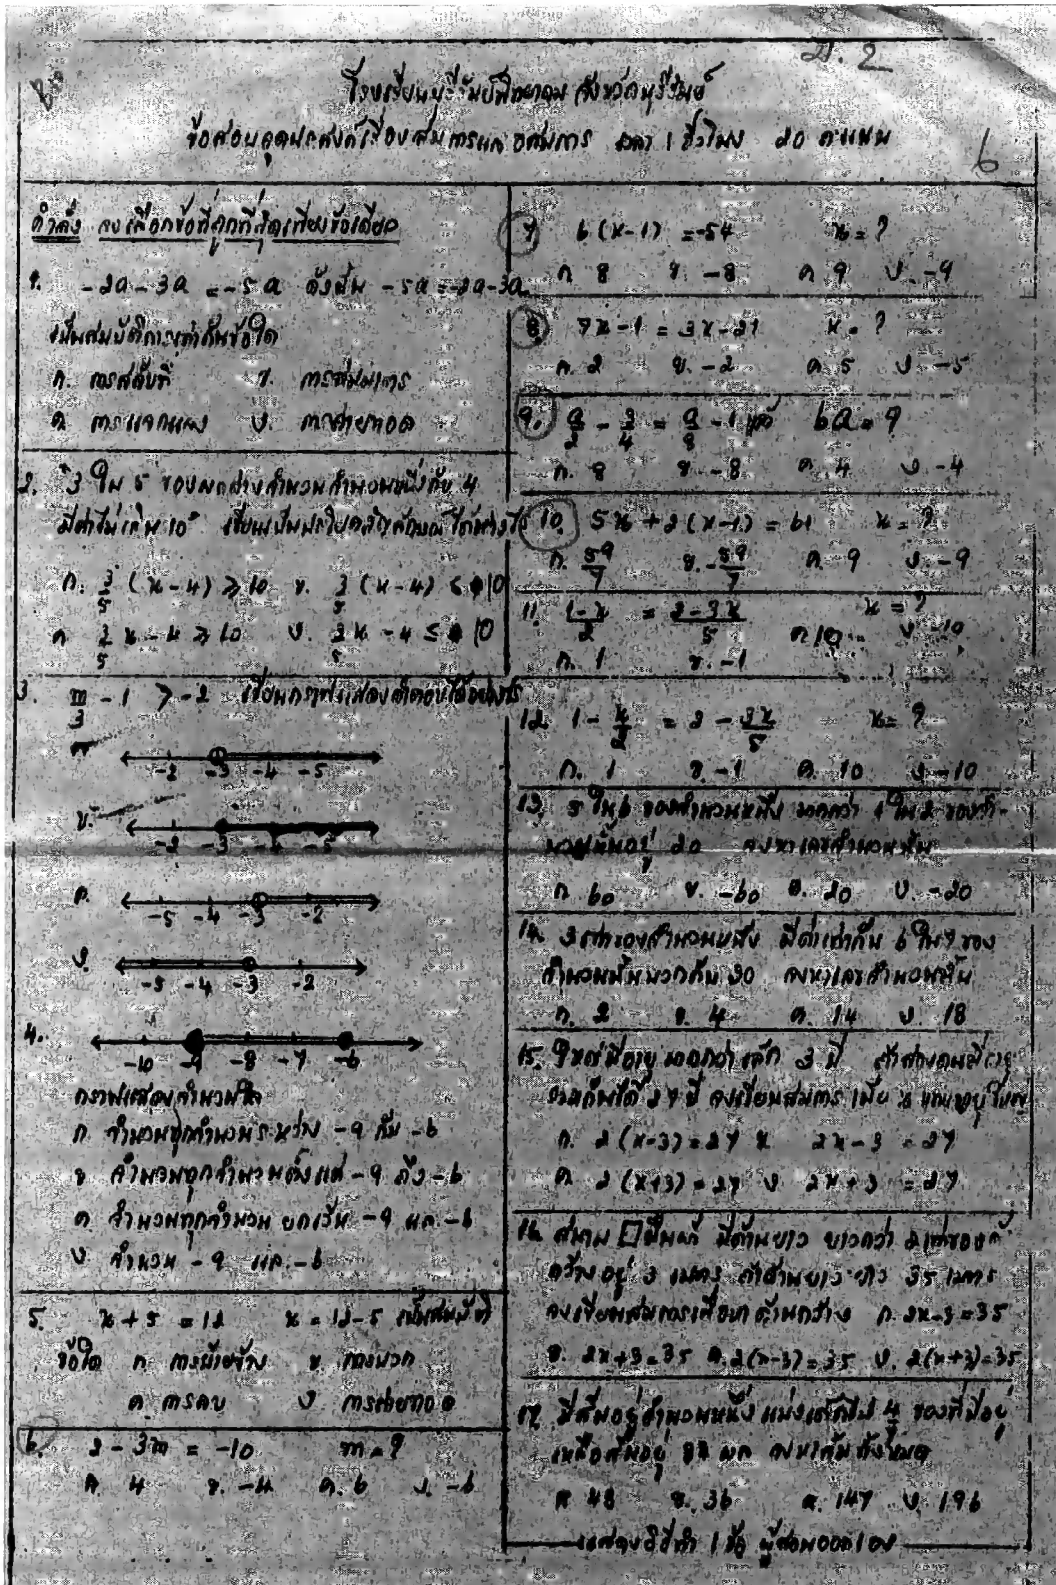 ม. 2
โรงเรียนบุรีรัมย์พิทยาคม จังหวัดบุรีรัมย์
ข้อสอบจุดประสงค์เรื่องสมการและอสมการ เวลา 1 ชั่วโมง 20 คะแนน
6
คำสั่ง จงเลือกข้อที่ถูกที่สุดเพียงข้อเดียว
1. -2a-3a = -5a ดังนั้น -5a = -2a-3a
เป็นสมบัติการเท่ากันข้อใด
ก. การสลับที่ ข. การสมมาตร
ค. การแจกแจง ง. การถ่ายทอด
2. "3 ใน 5 ของผลต่างจำนวนจำนวนหนึ่งกับ 4
มีค่าไม่เกิน 10" เขียนเป็นประโยคสัญลักษณ์ได้อย่างไร
ก. 3/5 (x-4) ≥ 10 ข. 3/5 (x-4) ≤ 10
ค. 3/5 x - 4 ≥ 10 ง. 3/5 x - 4 ≤ 10
3. m/3 - 1 > -2 เขียนกราฟแสดงคำตอบได้อย่างไร
ก. -2 -3 -4 -5
ข. -2 -3 -4 -5
ค. -5 -4 -3 -2
ง. -5 -4 -3 -2
4. -10 -9 -8 -7 -6
กราฟแสดงจำนวนใด
ก จำนวนทุกจำนวนระหว่าง -9 กับ -6
ข จำนวนทุกจำนวนตั้งแต่ -9 ถึง -6
ค จำนวนทุกจำนวน ยกเว้น -9 และ -6
ง จำนวน -9 และ -6
5. x + 5 = 12 x = 12-5 เป็นสมบัติ
ข้อใด ก การย้ายข้าง ข. การบวก
ค. การลบ ง การถ่ายทอด
6. 2 - 3m = -10 m = ?
ก. 4 ข. -4 ค. 6 ง. -6
7. 6(x-1) = -54 x = ?
ก 8 ข. -8 ค 9 ง. -9
8. 7x-1 = 3x-21 x = ?
ก. 2 ข. -2 ค. 5 ง -5
9. a/2 - 3/4 = a/8 - 1 แล้ว 6a = ?
ก. 8 ข. -8 ค. 4 ง -4
10. 5x + 2(x-1) = 61 x = ?
ก. 59/7 ข. -59/7 ค. 9 ง. -9
11. 1-x/2 = 2-3x/5 x = ?
ก. 1 ข. -1 ค 10 ง -10
12. 1 - x/2 = 2 - 3x/5 x = ?
ก. 1 ข. -1 ค. 10 ง -10
13. 5 ใน 6 ของจำนวนหนึ่ง มากกว่า 1 ใน 2 ของจำ-
นวนนั้นอยู่ 20 จงหาเลขจำนวนนั้น
ก. 60 ข. -60 ค. 20 ง. -20
14. 3 เท่าของจำนวนหนึ่ง มีค่าเท่ากับ 6 ใน 7 ของ
จำนวนนั้นบวกกับ 30 จงหาเลขจำนวนนั้น
ก. 2 ข. 4 ค. 14 ง. 18
15. ใหญ่มีอายุมากกว่าเล็ก 3 ปี ถ้าสองคนมีอายุ
รวมกันได้ 27 ปี จงเขียนสมการ เมื่อ x แทนอายุใหญ่
ก. 2(x-3) = 27 ข 2x - 3 = 27
ค. 2(x+3) = 27 ง 2x + 3 = 27
16. สนาม □ ผืนผ้า มีด้านยาว ยาวกว่า 2 เท่าของด้าน
กว้างอยู่ 3 เมตร ถ้าด้านยาว ยาว 35 เมตร
จงเขียนสมการเพื่อหาด้านกว้าง ก. 2x-3 = 35
ข. 2x+3 = 35 ค. 2(x-3) = 35 ง. 2(x+3) = 35
17. มีส้มอยู่จำนวนหนึ่ง แบ่งให้เด็กไป 4 ของที่มีอยู่
เหลือส้มอยู่ ผล จงหาส้มทั้งหมด
ก 48 ข. 36 ค. 147 ง. 196
แสดงวิธีทำ 1 ข้อ ผู้สอนออกเอง